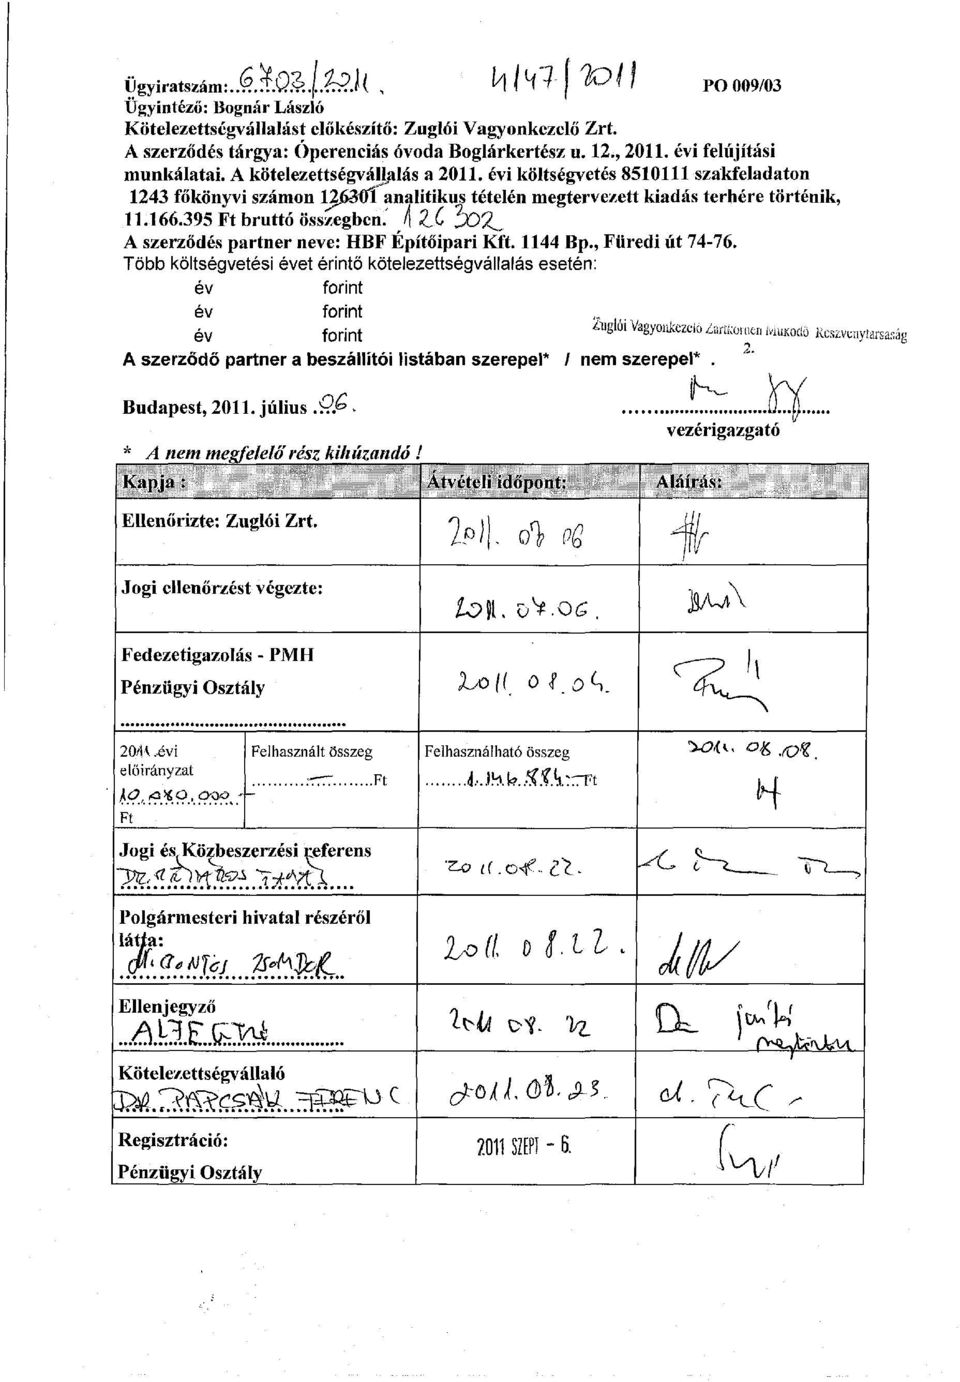 Ügyiratszám: 6703/2011 4/47/2011 PO 009/03
Ügyintéző: Bognár László
Kötelezettségvállalást előkészítő: Zuglói Vagyonkezelő Zrt.
A szerződés tárgya: Óperenciás óvoda Boglárkertész u. 12., 2011. évi felújítási
munkálatai. A kötelezettségvállalás a 2011. évi költségvetés 8510111 szakfeladaton
1243 főkönyvi számon 126301 analitikus tételén megtervezett kiadás terhére történik,
11.166.395 Ft bruttó összegben. 126302
A szerződés partner neve: HBF Építőipari Kft. 1144 Bp., Füredi út 74-76.
Több költségvetési évet érintő kötelezettségvállalás esetén:
év forint
év forint
év forint
Zuglói Vagyonkezelő Zártkörűen Működő Részvénytársaság
2.
A szerződő partner a beszállítói listában szerepel* / nem szerepel* .
Budapest, 2011. július 06.
vezérigazgató
* A nem megfelelő rész kihúzandó !
Kapja : Átvételi időpont: Aláírás:
Ellenőrizte: Zuglói Zrt. 2011. 07 06
Jogi ellenőrzést végezte: 2011. 07.06.
Fedezetigazolás - PMH
Pénzügyi Osztály 2011. 08.04.
2011.évi előirányzat 10.080.000.- Ft
Felhasznált összeg - Ft
Felhasználható összeg Ft
2011. 08.08.
Jogi és Közbeszerzési referens
2011.08.22.
Polgármesteri hivatal részéről
látta: 2011. 08.22.
Ellenjegyző
2011 08. 22
Kötelezettségvállaló
DR. PAPCSÁK FERENC 2011. 08. 23.
Regisztráció: 2011 SZEPT - 6.
Pénzügyi Osztály